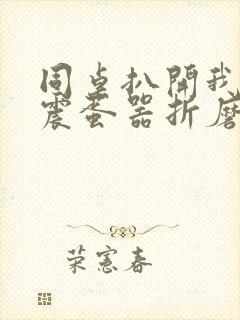 同桌扒開我
震蛋器折磨
荣憲春